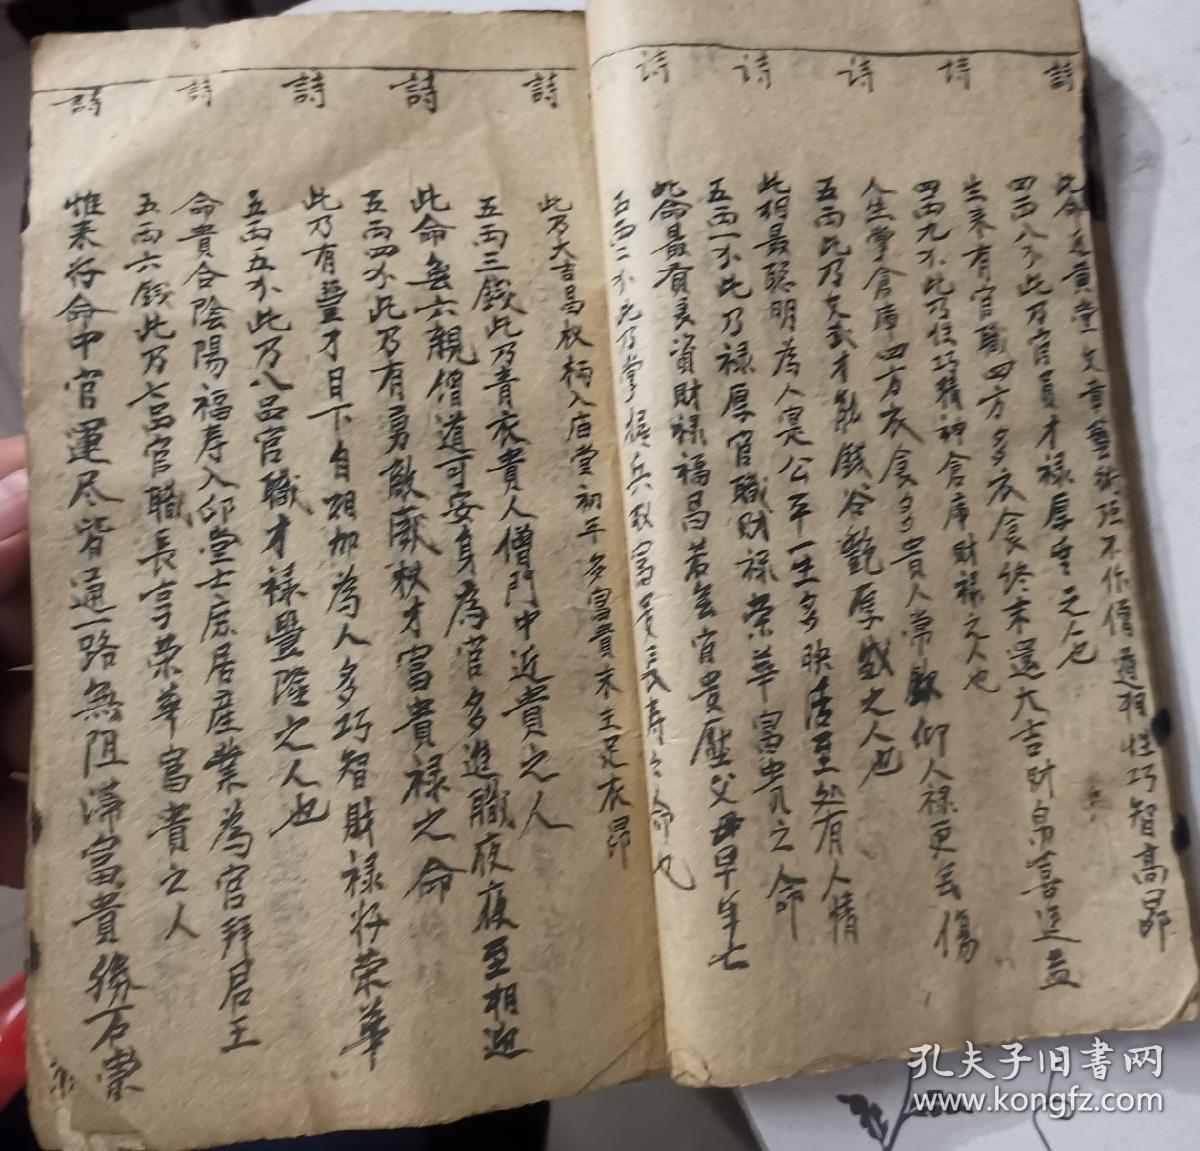 詩
此命
文章藝術强不作僧道相性巧智高昂
四两八分此乃官員才禄厚重之人也
詩
生来有官職四方多衣食终末還大吉財帛喜進益
四两九分此乃性巧精神倉庫財禄之人也
诗
人生掌倉庫四方衣食多貴人常欽仰人禄更无傷
五两此乃文武才能錢谷艷厚盛之人也
诗
此相最聪明為人寔公平一生多映活至处有人情
五两一分此乃禄厚官職財禄榮華富貴之命
诗
此命最有良資財禄福昌若無官貴壓父母早年亡
五两二分此乃掌握兵权富貴長寿之命也
詩
此乃大吉昌权柄入庙堂初年多富貴末主足衣昂
五两三錢此乃青衣貴人僧門中近貴之人
詩
此命無六親僧道可安身為官多進職夜夜至相迎
五两四分此乃有勇敵厳权才富貴禄之命
詩
此乃有豐才目下自相加為人多巧智財禄好榮華
五两五分此乃八品官職才禄豐隆之人也
詩
命貴合陰陽福寿入邱堂士庶居産業為官拜君王
五两六錢此乃七品官職長享榮華富貴之人
詩
惟来好命中官運尽皆通一路無阻滞富貴勝石崇
孔夫子旧書网
www.kongfz.com